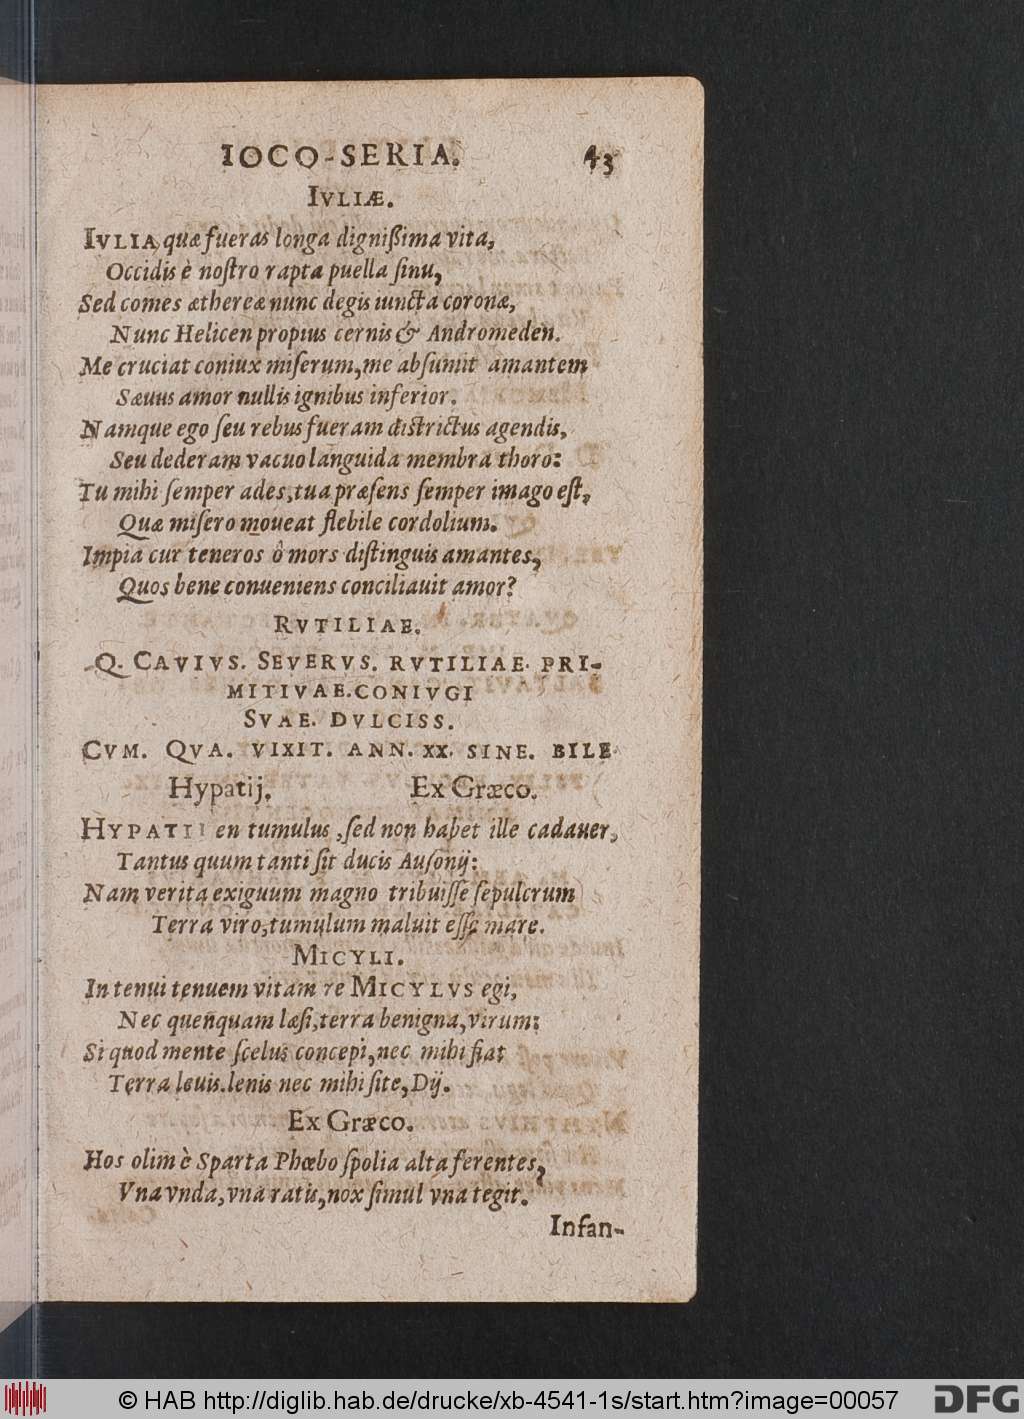 IOCO-SERIA. 43
IVLIÆ.
IVLIA, quæ fueras longa dignißima vita,
Occidis è noſtro rapta puella ſinu,
Sed comes æthereæ nunc degis iuncta coronæ,
Nunc Helicen propius cernis & Andromeden.
Me cruciat coniux miſerum, me abſumit amantem
Sæuus amor nullis ignibus inferior.
Namque ego ſeu rebus fueram diſtrictus agendis,
Seu dederam vacuo languida membra thoro:
Tu mihi ſemper ades, tua præſens ſemper imago eſt,
Quæ miſero moueat flebile cordolium.
Impia cur teneros ô mors diſtinguis amantes,
Quos bene conueniens conciliauit amor?
RVTILIAE.
Q. CAVIVS. SEVERVS. RVTILIAE. PRI-
MITIVAE. CONIVGI
SVAE. DVLCISS.
CVM. QVA. VIXIT. ANN. XX. SINE. BILE
Hypatij. Ex Græco.
HYPATII en tumulus, ſed non habet ille cadauer,
Tantus quum tanti ſit ducis Auſonij:
Nam verita exiguum magno tribuiſſe ſepulcrum
Terra viro, tumulum maluit eſſe mare.
MICYLI.
In tenui tenuem vitam re MICYLVS egi,
Nec quenquam læſi, terra benigna, virum:
Si quod mente ſcelus concepi, nec mihi fiat
Terra leuis. lenis nec mihi ſite, Dij.
Ex Græco.
Hos olim è Sparta Phœbo ſpolia alta ferentes,
Vna vnda, vna ratis, nox ſimul vna tegit.
Infan-
© HAB http://diglib.hab.de/drucke/xb-4541-1s/start.htm?image=00057 DFG